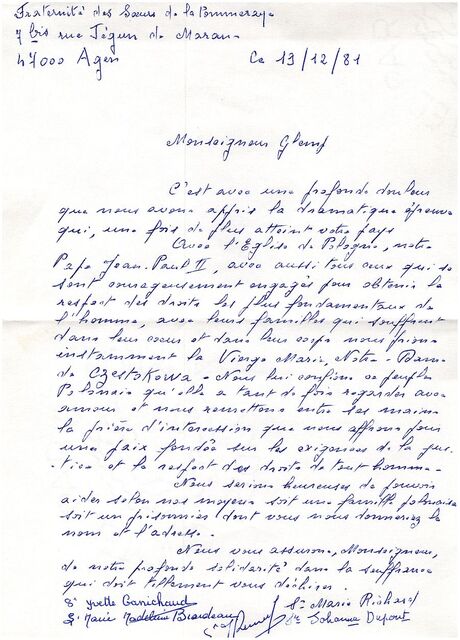 Fraternité des Sœurs de la Pommeraye
7 bis rue Tégun de Maran
47000 Agen
Ce 19/12/81
Monseigneur Glemp
C'est avec une profonde douleur
que nous avons appris la dramatique épreuve
qui, une fois de plus atteint votre pays
Avec l'Eglise de Pologne, notre
Pape Jean-Paul II, avec aussi tous ceux qui se
sont courageusement engagés pour obtenir le
respect des droits les plus fondamentaux de
l'homme, avec leurs familles qui souffrent
dans leur cœur et dans leur corps nous prions
instamment la Vierge Marie, Notre-Dame
de Czestokowa - Nous lui confions ce peuple
Polonais qu'elle a tant de fois regardé avec
amour et nous remettons entre ses mains
la prière d'intercession que nous offrons pour
une paix fondée sur les exigences de la jus-
tice et le respect des droits de tout homme -
Nous serions heureuses de pouvoir
aider selon nos moyens soit une famille polonaise
soit un prisonnier dont vous nous donneriez le
nom et l'adresse.
Nous vous assurons, Monseigneur,
de notre profonde solidarité dans la souffrance
qui doit tellement vous déchirer.
Sr Yvette Ganichaud Sr Marie Richard
Sr Marie Madeleine Beaudeau Sr Johanna Dupont